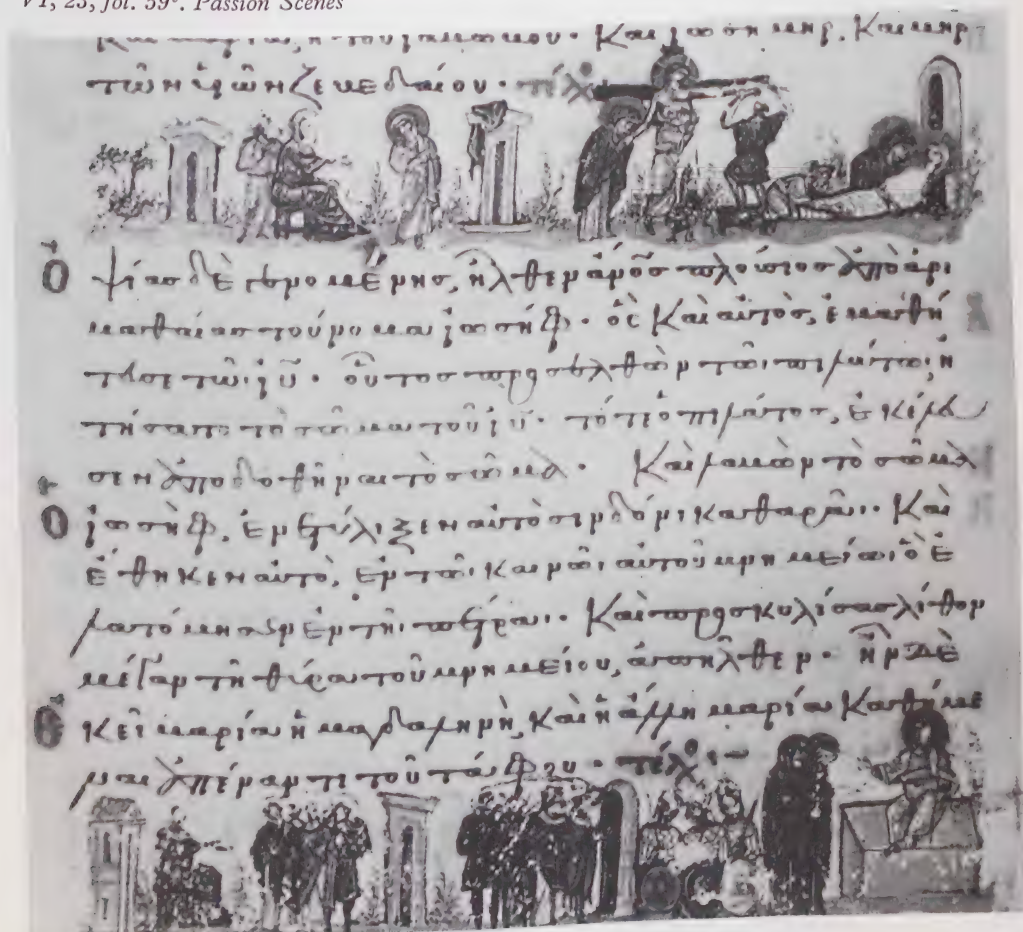 VI, 23, fol. 59v. Passion Scenes
Καὶ μαρία, ἡ τοῦ ἰακώβου. Καὶ ἰωσὴ μηρ. Καὶ ἡ μηρ
τῶν υἱῶν ζεβεδαίου. τέλ
Ὀψίας δὲ γενομένης, ἦλθεν ἄνος πλούσιος ἀπὸ ἀρι
μαθαίας τοὔνομα ἰωσὴφ. ὃς Καὶ αὐτὸς, ἐμαθή
τευσε τῶι ιυ. οὗτος προσελθὼν τῶι πιλάτωι, ἠ
τήσατο τὸ σῶμα τοῦ ιυ. τότε ὁ πιλάτος, ἐκέλευ
σεν ἀποδοθῆναι τὸ σῶμα. Καὶ λαβὼν τὸ σῶμα
ὁ ἰωσὴφ, ἐνετύλιξεν αὐτὸ σινδόνι καθαρᾶι. Καὶ
ἔθηκεν αὐτὸ, ἐν τῶι καινῶι αὐτοῦ μνημείωι ὃ ἐ
λατόμησεν ἐν τῆι πέτραι. Καὶ προσκυλίσας λίθον
μέγαν τῆ θύρα τοῦ μνημείου, ἀπῆλθεν. ἦν δὲ
ἐκεῖ μαρία ἡ μαγδαληνὴ, Καὶ ἡ ἄλλη μαρία Καθήμε
ναι ἀπέναντι τοῦ τάφου. τέλ